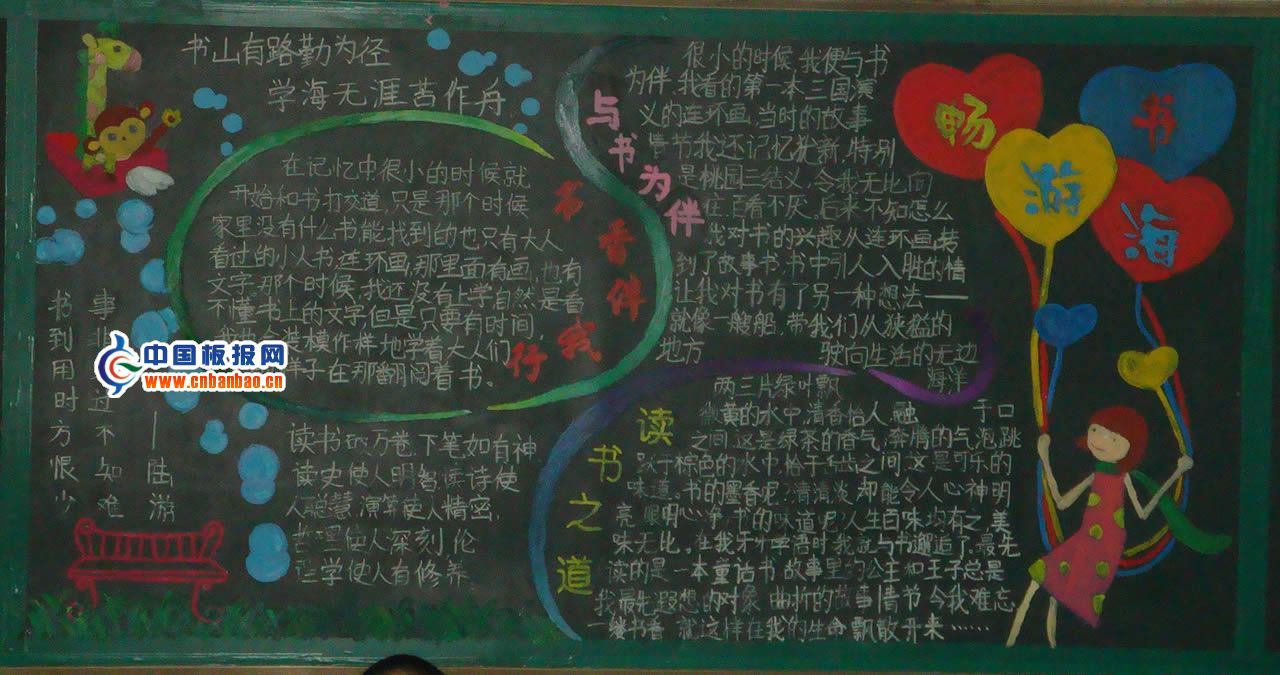 书山有路勤为径
学海无涯苦作舟
在记忆中很小的时候就
开始和书打交道,只是那个时候
家里没有什么书,能找到的也只有大人
看过的小人书连环画,那里面有画,也有
文字,那个时候,我还没有上学自然是看
不懂书上的文字但是只要有时间,
装模作样地学着大人们
子在那翻阅着书。
书香伴我行
书到用时方恨少
事非 过不知难
——陆游
中国板报网
www.cnbanbao.cn
读书破万卷,下笔如有神
读史使人明智读诗使
人聪慧,演算使人精密,
哲理使人深刻,伦
理学使人有修养
与书为伴
很小的时候,我便与书
为伴,我看的第一本三国演
义的连环画,当时的故事
情节我还记忆犹新,特别
是桃园三结义,令我无比向
往,百看不厌,后来不知怎么
我对书的兴趣从连环画,转
到了故事书,书中引人入胜的情
让我对书有了另一种想法——
就像一艘船,带我们从狭猛的
地方 驶向生活的无边
海洋
读书之道
两三片绿叶飘
微黄的水中,清香怡人融 于口
之间,这是绿茶的香气,奔腾的气泡,跳
跃于棕色的水中 之间,这是可乐的
味道。书的墨香呢,清清淡 却能令人心神明
亮 眼明心净,书的味道呢,人生百味均有之,美
味无比。在我牙牙学语时,我就与书邂逅了,最先
读的是一本童话书,故事里的公主和王子总是
我最先遐想的对象,曲折的故事情节,令我难忘
一缕书香 就这样在我的生命飘散开来……
畅游书海